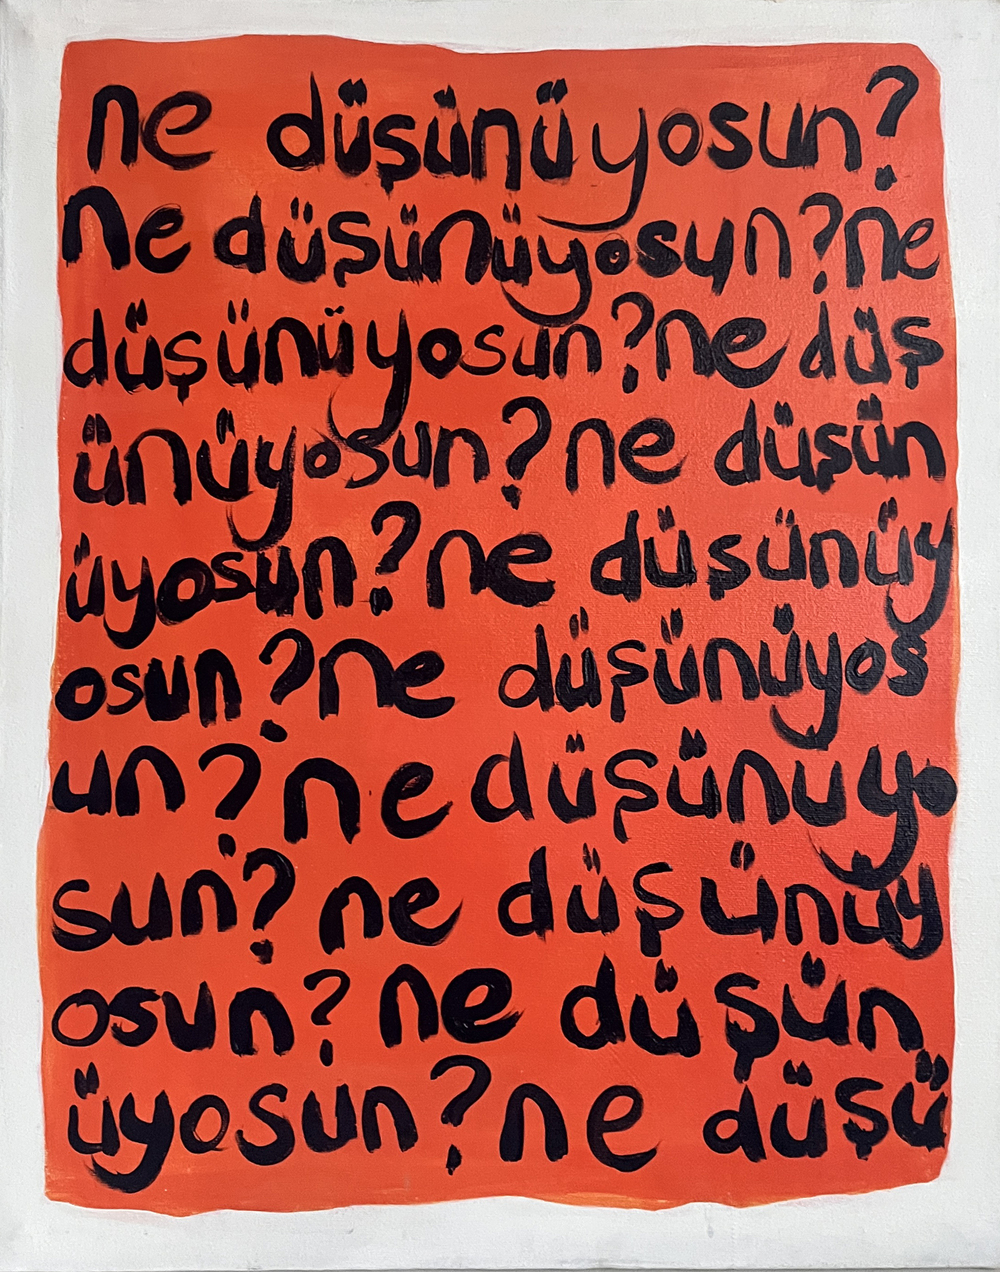 ne düşünüyosun?
Ne düşünüyosun? ne
düşünüyosun? ne düş
ünüyosun? ne düşün
üyosun? ne düşünüy
osun? ne düşünüyos
un? ne düşünuyo
sun? ne düşünüy
osun? ne düşün
üyosun? ne düşü